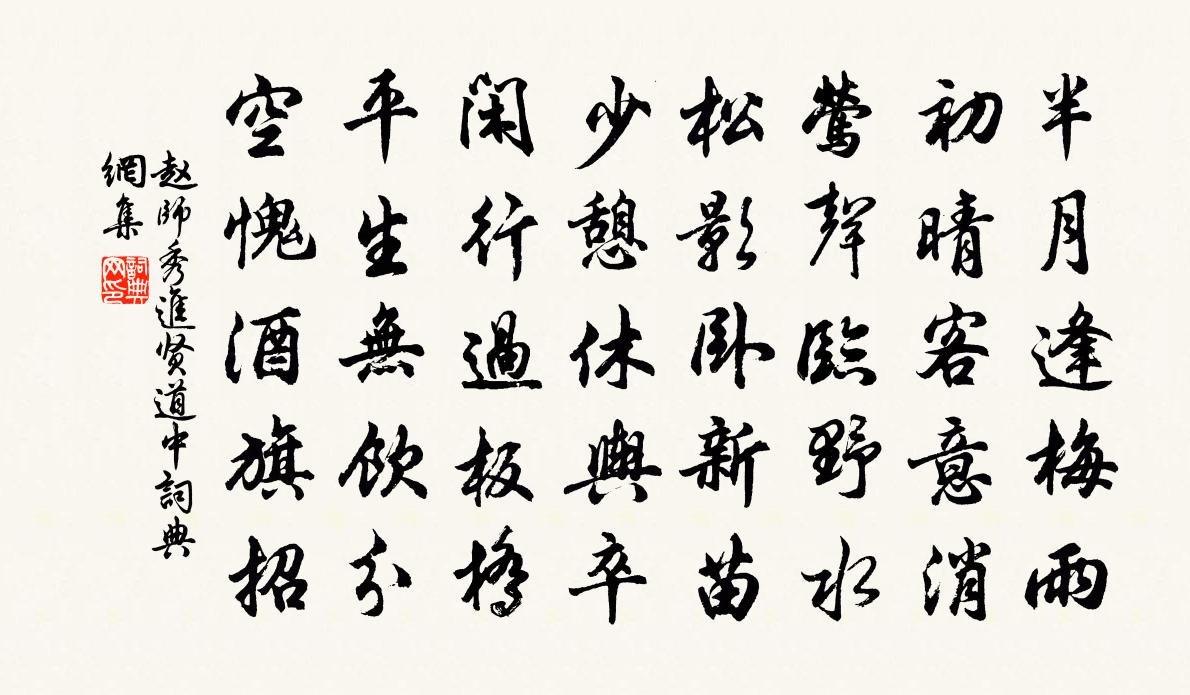 半月逢梅雨
初晴客意消
鶯聲臨野水
松影卧新苗
少憩休輿卒
閑行過板橋
平生無飲分
空愧酒旗招
赵師秀進贤道中詞典
網集
詞典
网印